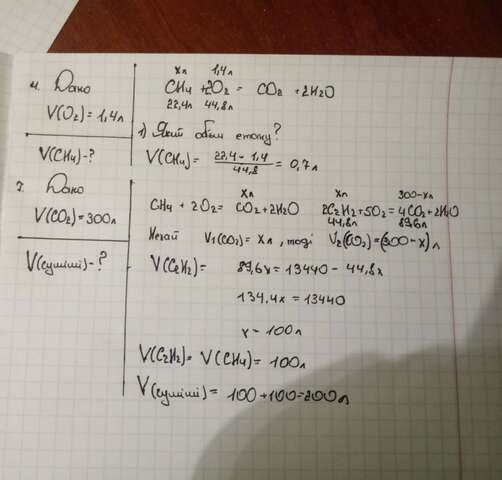 4. Дано
V(O₂) = 1,4л
V(CH₄) - ?
xл 1,4л
CH₄ + 2O₂ = CO₂ + 2H₂O
22,4л 44,8л
1) Який обʼєм
V(CH₄) = 22,4 - 1,4 / 44,8 = 0,7л
Дано
V(CO₂) = 300л
V(суміші) - ?
xл xл 300-xл
CH₄ + 2O₂ = CO₂ + 2H₂O 2C₂H₂ + 5O₂ = 4CO₂ + 2H₂O
44,8л 89,6л
Нехай V₁(CO₂) = xл, тоді V₂(CO₂) = (300 - x)л
V(C₂H₂) = 89,6x = 13440 - 44,8x
134,4x = 13440
x - 100л
V(C₂H₂) = V(CH₄) = 100л
V(суміші) = 100 + 100 = 200л